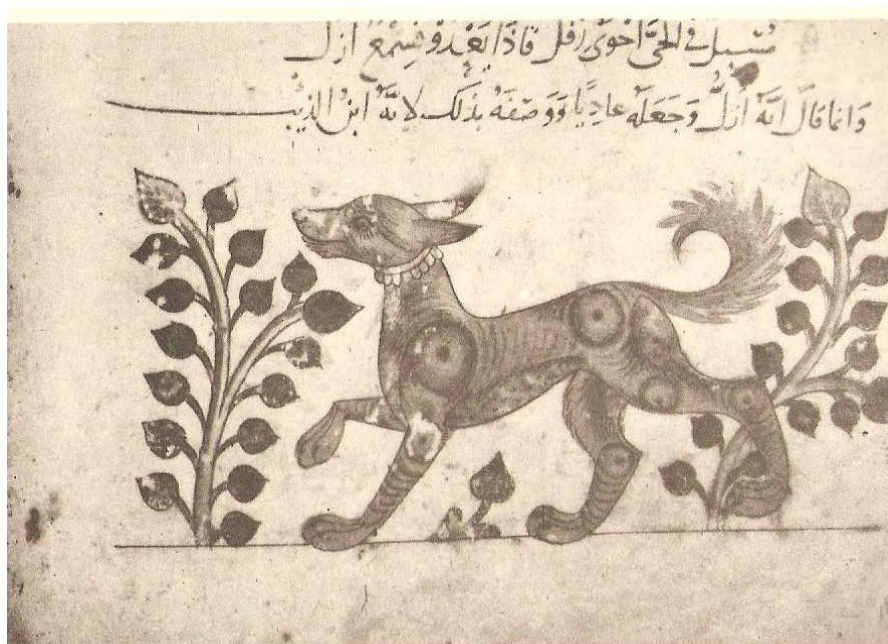 مُسْبِل في الحَيِّ أحْوَى رِفَلّ فَاذَا يَعْدُو فَسِمْعٌ أزَلّ
وَانما قَالَ انَّهُ أزَلُّ وَجَعَلَهُ عَادِيًا وَوَصَفَهُ بِذَلِكَ لِانَّهُ ابْنُ الذِّئْب